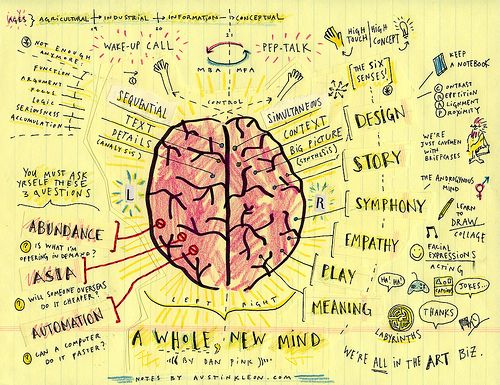 AGES } AGRICULTURAL → INDUSTRIAL → INFORMATION → CONCEPTUAL
19
20
21
WAKE-UP CALL
PEP-TALK
MBA MFA
CONTROL
NOT ENOUGH
ANYMORE:
FUNCTION
ARGUMENT
FOCUS
LOGIC
SERIOUSNESS
ACCUMULATION
HIGH TOUCH
HIGH CONCEPT
THE SIX
SENSES!
KEEP
A NOTEBOOK
CONTRAST
REPETITION
ALIGNMENT
PROXIMITY
SEQUENTIAL
TEXT
DETAILS
(ANALYSIS)
SIMULTANEOUS
CONTEXT
BIG PICTURE
(SYNTHESIS)
L
R
DESIGN
STORY
SYMPHONY
EMPATHY
PLAY
MEANING
WE'RE
JUST CAVEMEN
WITH
BRIEFCASES
THE ANDROGYNOUS
MIND
LEARN
TO
DRAW
COLLAGE
FACIAL
EXPRESSIONS
ACTING
HA! HA!
JOKES...
LABYRINTHS
THANKS
YOU MUST ASK
YRSELF THESE
3 QUESTIONS
ABUNDANCE
? IS WHAT I'M
OFFERING IN DEMAND?
ASIA
? WILL SOMEONE OVERSEAS
DO IT CHEAPER?
AUTOMATION
? CAN A COMPUTER
DO IT FASTER?
LEFT RIGHT
A WHOLE, NEW MIND
BY DAN PINK
NOTES BY AUSTINKLEON.COM
WE'RE ALL IN THE ART BIZ.